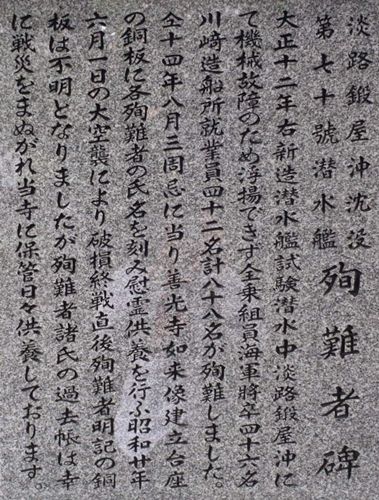 淡路鍛屋沖沈没
第七十號潜水艦
殉難者碑
大正十二年右新造潜水艦試験潜水中淡路鍛屋沖に
て機械故障のため浮揚できず全乗組員海軍將卒四十六名
川崎造船所就業員四十二名計八十八名が殉難しました。
仝十四年八月三周忌に当り善光寺如来像建立台座
の銅板に各殉難者の氏名を刻み慰霊供養を行ふ昭和廿年
六月一日の大空襲により破損終戦直後殉難者明記の銅
板は不明となりましたが殉難者諸氏の過去帳は幸
に戦災をまぬがれ当寺に保管日々供養しております。